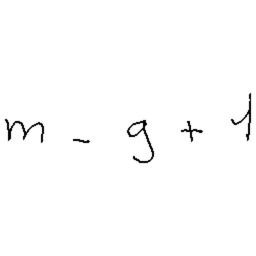 m - g + 1